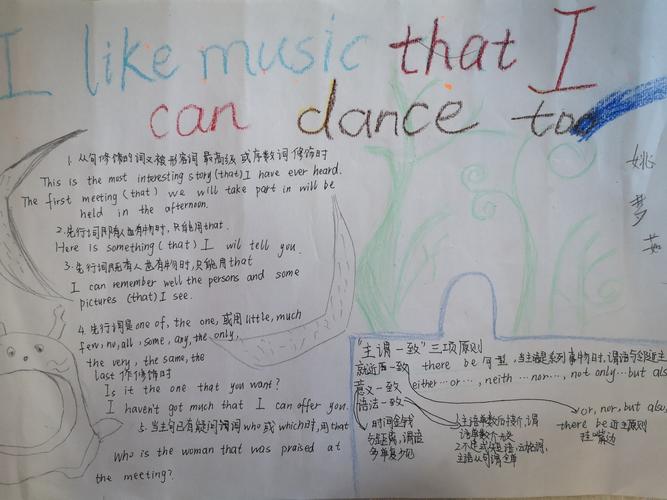 I like music that I
can dance too
姚
梦
茹
1. 从句修饰的词又被形容词 最高级 或序数词修饰时
This is the most interesting story (that) I have ever heard.
The first meeting (that) we will take part in will be
held in the afternoon.
2. 先行词 物时, 只能用that.
Here is something (that) I will tell you.
3. 先行词既有人也有物时, 只能用that
I can remember well the persons and some
pictures (that) I see.
4. 先行词是one of, the one, 或用 little, much
few, no, all, some, any, the only,
the very, the same, the
last 作修饰时
Is it the one that you want?
I haven't got much that I can offer you.
5. 当主句已有疑问词who 或 which时, 用that
Who is the woman that was praised at
the meeting?
"主谓一致"三项原则
就近一致 there be 句型, 当主语是系列事物时, 谓语与
意义一致 either...or..., neith...nor..., not only...but als
语法一致
or, nor, but also,
there be 近主原则
时间金钱